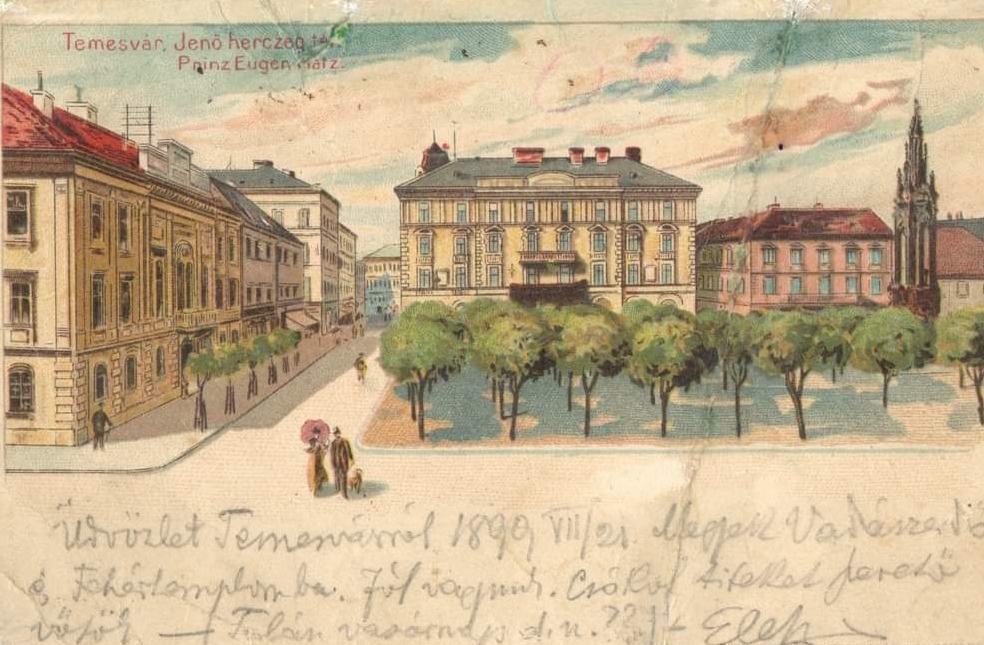 Temesvár, Jenő herczeg tér.
Prinz Eugen Platz.
Üdvözlet Temesvárról 1899 VII/21. Megyek Vadászerdő
s Fehértemplomba. Jól vagyunk. Csókol titeket szerető
vőfők — Talán vasárnap d. u. ??! — Elek